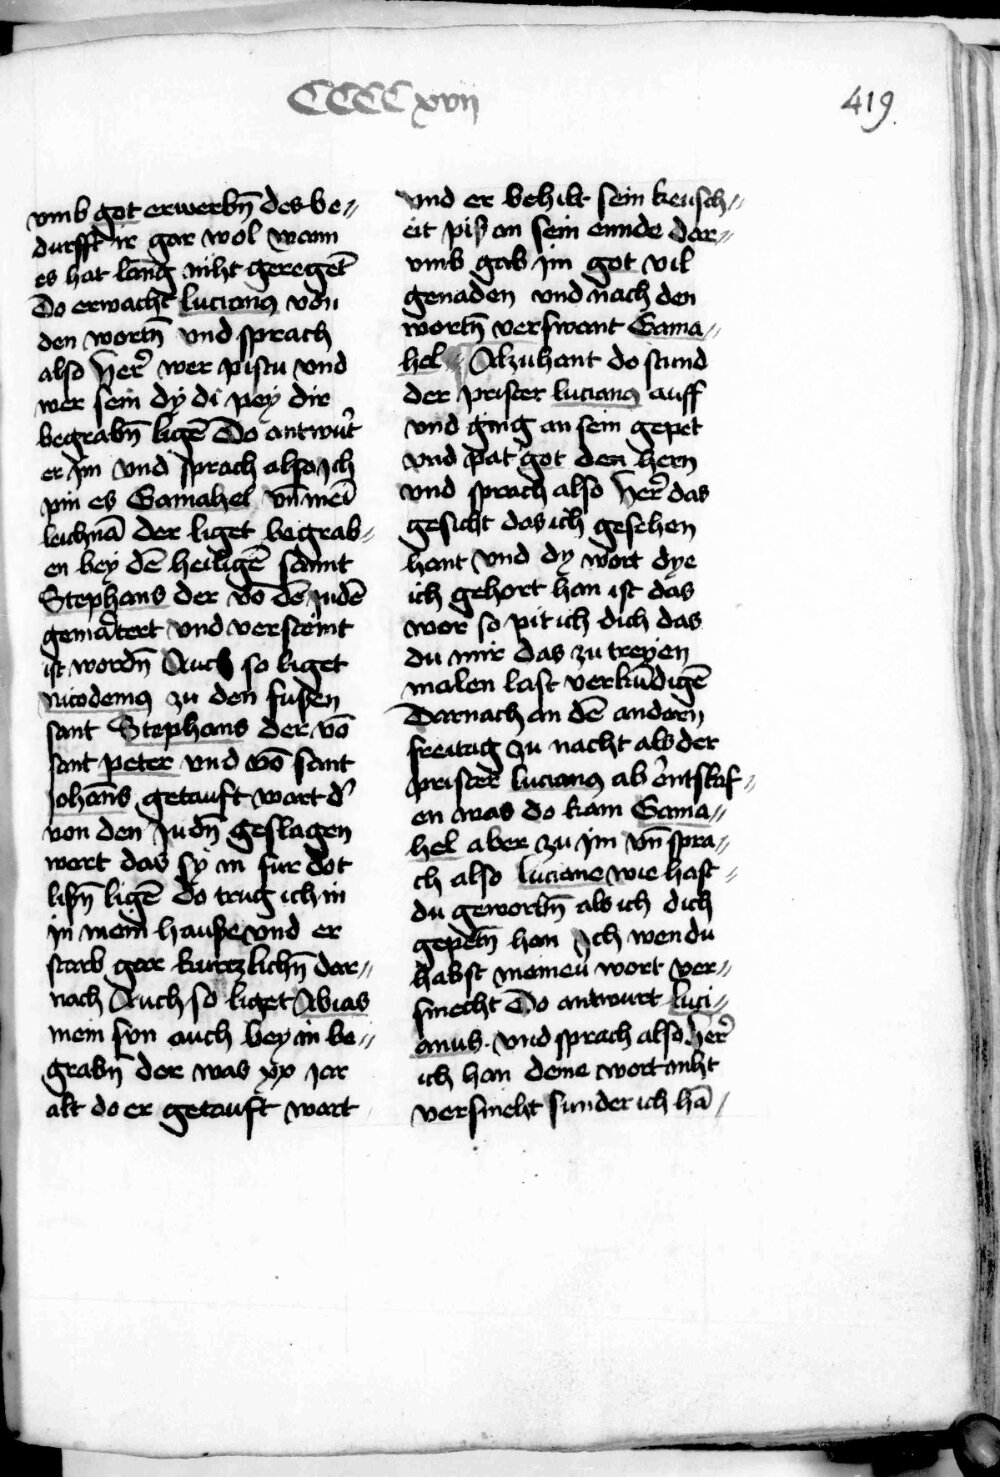 CCCCxvij
419.
vmb got erwerbn̄ des be〃
durfft ir gar wol wann
es hat lang niht geregēt
Do erwacht lucianꝰ von
den wortn̄ vnd sprach
also her̄ wer pistu vnd
wer sein dy di pey dir
begrabn̄ ligē Do antwůrt
er im vnd sprach also Jch
pin es Gamahel vn̄ mei̅
leichnā der liget begrab〃
en bey dē heiligē sannt
Stephans der vō dē Judē
gemartert vnd versteint
ist wordn̄ Auch so liget
nicodemꝰ zu den fußen
sant Stephans der vō
sant peter vnd vō sant
Johan̄s getauft wart d'
von den Judn̄ geslagen
wert das sy in fur dot
lißn̄ ligē do trug ich in
in mein hauße vnd er
starb gar kurczlichn̄ dar〃
nach Auch so liget Abias
mein sun auch bey im be〃
grabn̄ der was xx jar
alt do er getauft wart
vnd er behilt sein keusch〃
eit piß an sein ennde dar〃
vmb gab jm got vil
genaden vnd nach den
wortn̄ verswant Gama〃
hel 〃 Alzuhant do stund
der prister lucianꝰ auff
vnd ging an sein gepet
vnd pat got den hern
vnd sprach also Her̄ das
gesicht das ich gesehen
hant vnd dy wort dye
ich gehort han ist das
wor so pit ich dich das
du mir das zu treyen
malen last verkūdigē
Darnach an dē andern
freitag zu nacht als der
prister lucianꝰ ab entslaf〃
en was do kam Gama〃
hel aber zu jm vn̄ spra〃
ch also luciane wie hast
du gewortn̄ als ich dich
gepetn̄ han Jch wen du
habst meineu wort ver〃
smecht Do antwurt luci〃
anus. vnd sprach also her̄
ich han deine wort niht
versmeht sunder ich hā